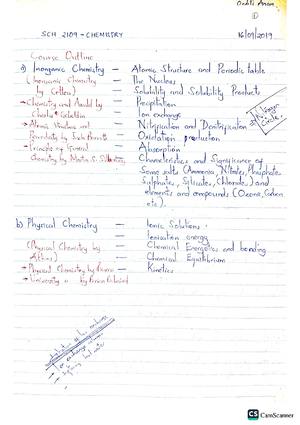 Onditi Anam
①
SCH 2109 - CHEMISTRY 16/09/2019
Course Outline
a) Inorganic Chemistry - Atomic Structure and Periodic table
(Inorganic Chemistry - The Nucleus
by Cotton) - Solubility and Solubility Products
→ Chemistry and Aerobid by - Precipitation
Charles - Ion exchange
→ Atomic Structure and - Nitrification and Denitrification
Periodicity by Jack Barrett - Oxidation production
→ Principle of General - Absorption
Chemistry by Martin S. Silb - Characteristics and Significance of
Some salts (Ammonia, Nitrates, Phosphate,
Sulphates, Silicates, Chlorates) and
elements and compounds (Ozone, Carbon
etc).
Nitrogen
Cycle
b) Physical Chemistry - Ionic Solutions
- Ionisation energy
(Physical Chemistry by - Chemical Energetics and bonding
Atkins) - Chemical Equilibrium
→ Physical Chemistry by - Kinetics
→ University " by
of ion exchange
hard water
CS CamScanner